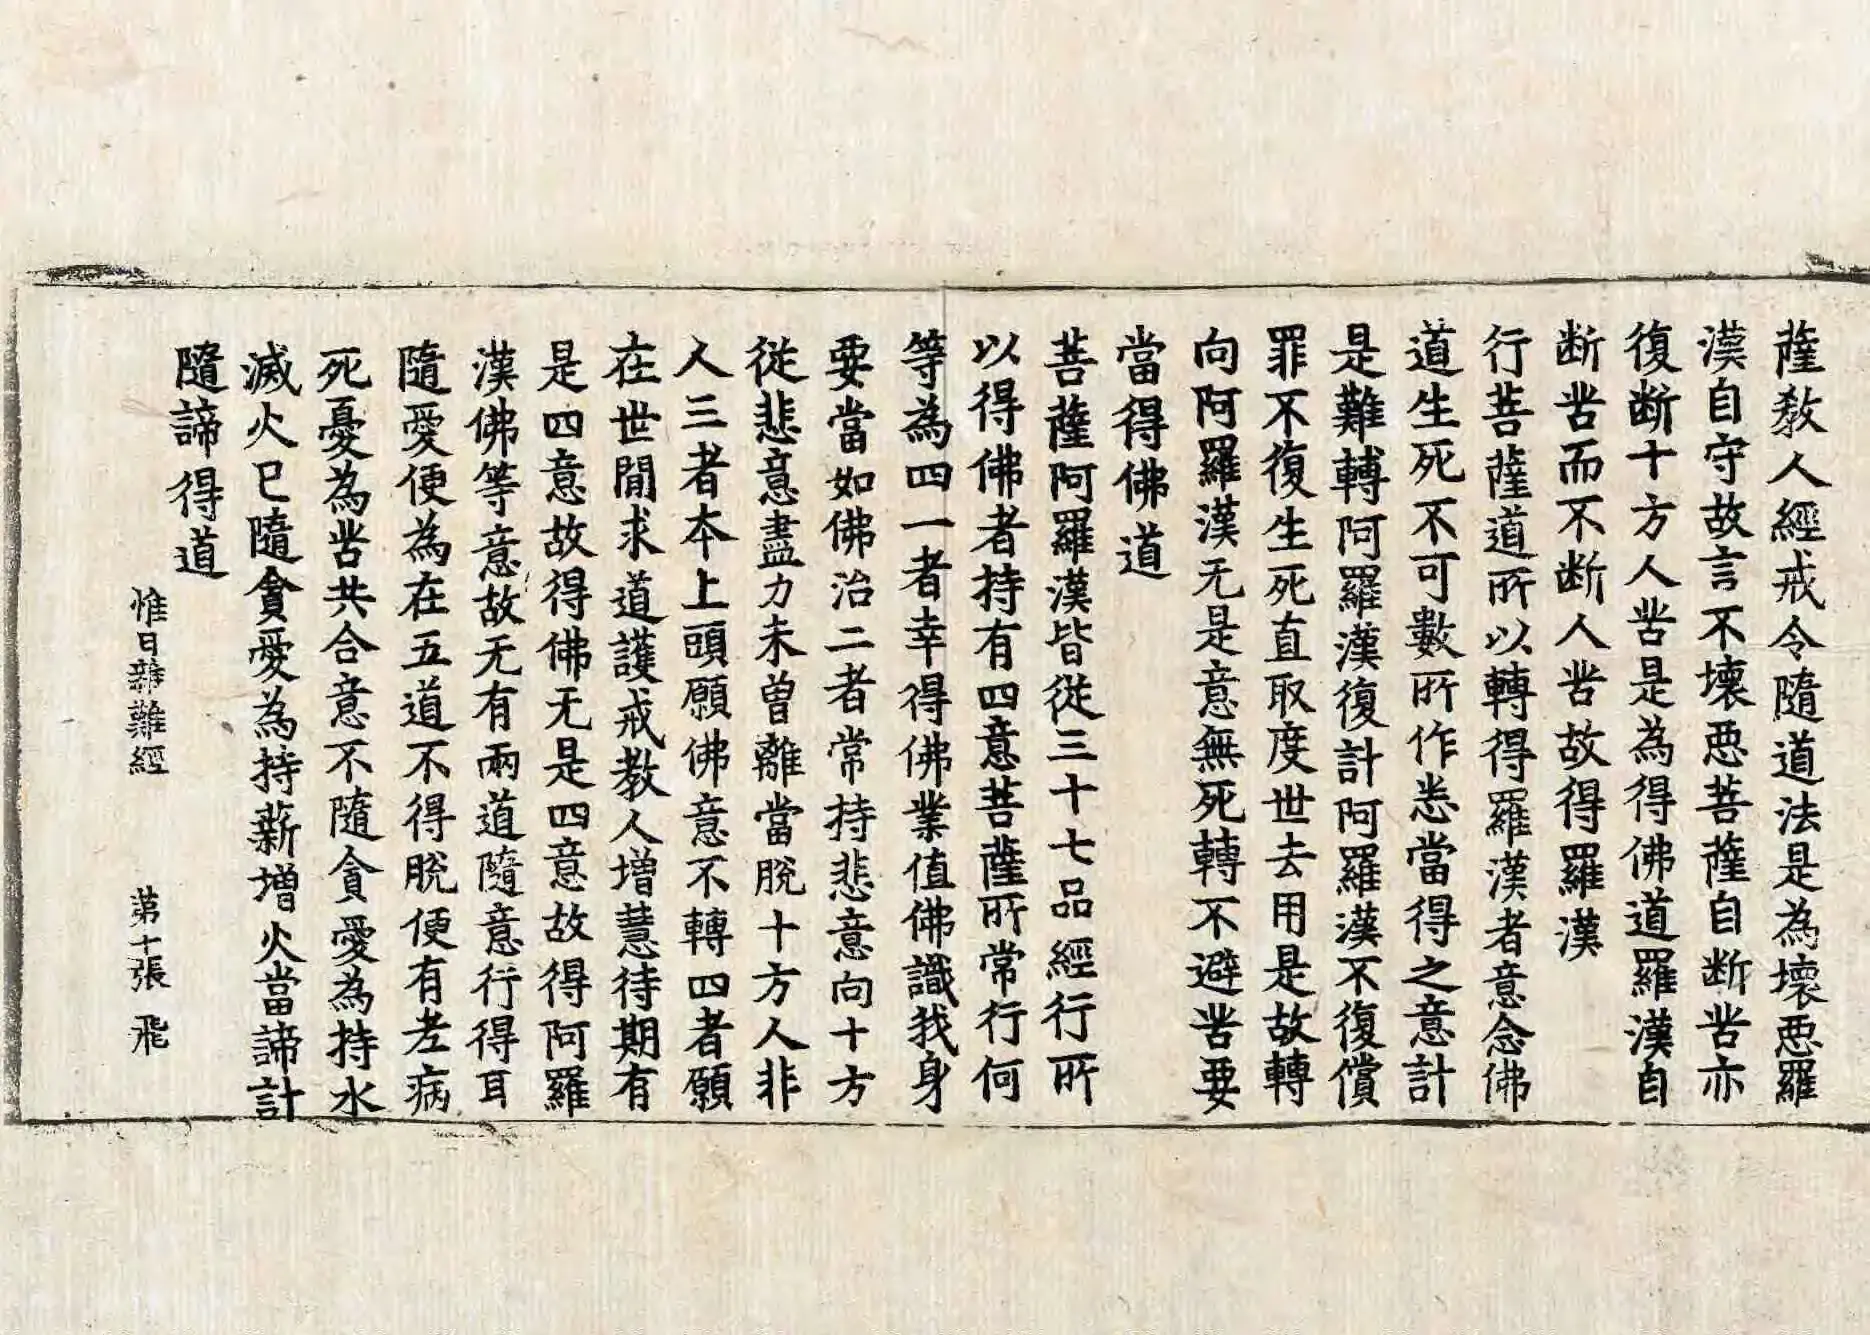 薩教人經戒令隨道法是為壞惡羅
漢自守故言不壞惡菩薩自断苦亦
復断十方人苦是為得佛道羅漢自
断苦而不断人苦故得羅漢
行菩薩道所以轉得羅漢者意念佛
道生死不可數所作悉當得之意計
是難轉阿羅漢復計阿羅漢不復償
罪不復生死直取度世去用是故轉
向阿羅漢无是意無死轉不避苦要
當得佛道
菩薩阿羅漢皆從三十七品經行所
以得佛者持有四意菩薩所常行何
等為四一者幸得佛業值佛識我身
要當如佛治二者常持悲意向十方
從悲意盡力未曾離當脫十方人非
人三者本上頭願佛意不轉四者願
在世間求道護戒教人增慧待期有
是四意故得佛无是四意故得阿羅
漢佛等意故无有兩道隨意行得耳
隨愛便為在五道不得脫便有老病
死憂為苦共合意不隨貪愛為持水
滅火已隨貪愛為持薪增火當諦計
隨諦得道
惟日雜難經 第十張 飛